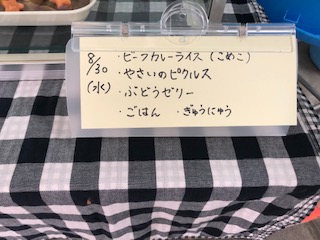 8/30 (水)
・ビーフカレーライス(こめこ)
・やさいのピクルス
・ぶどうゼリー
・ごはん ・ぎゅうにゅう